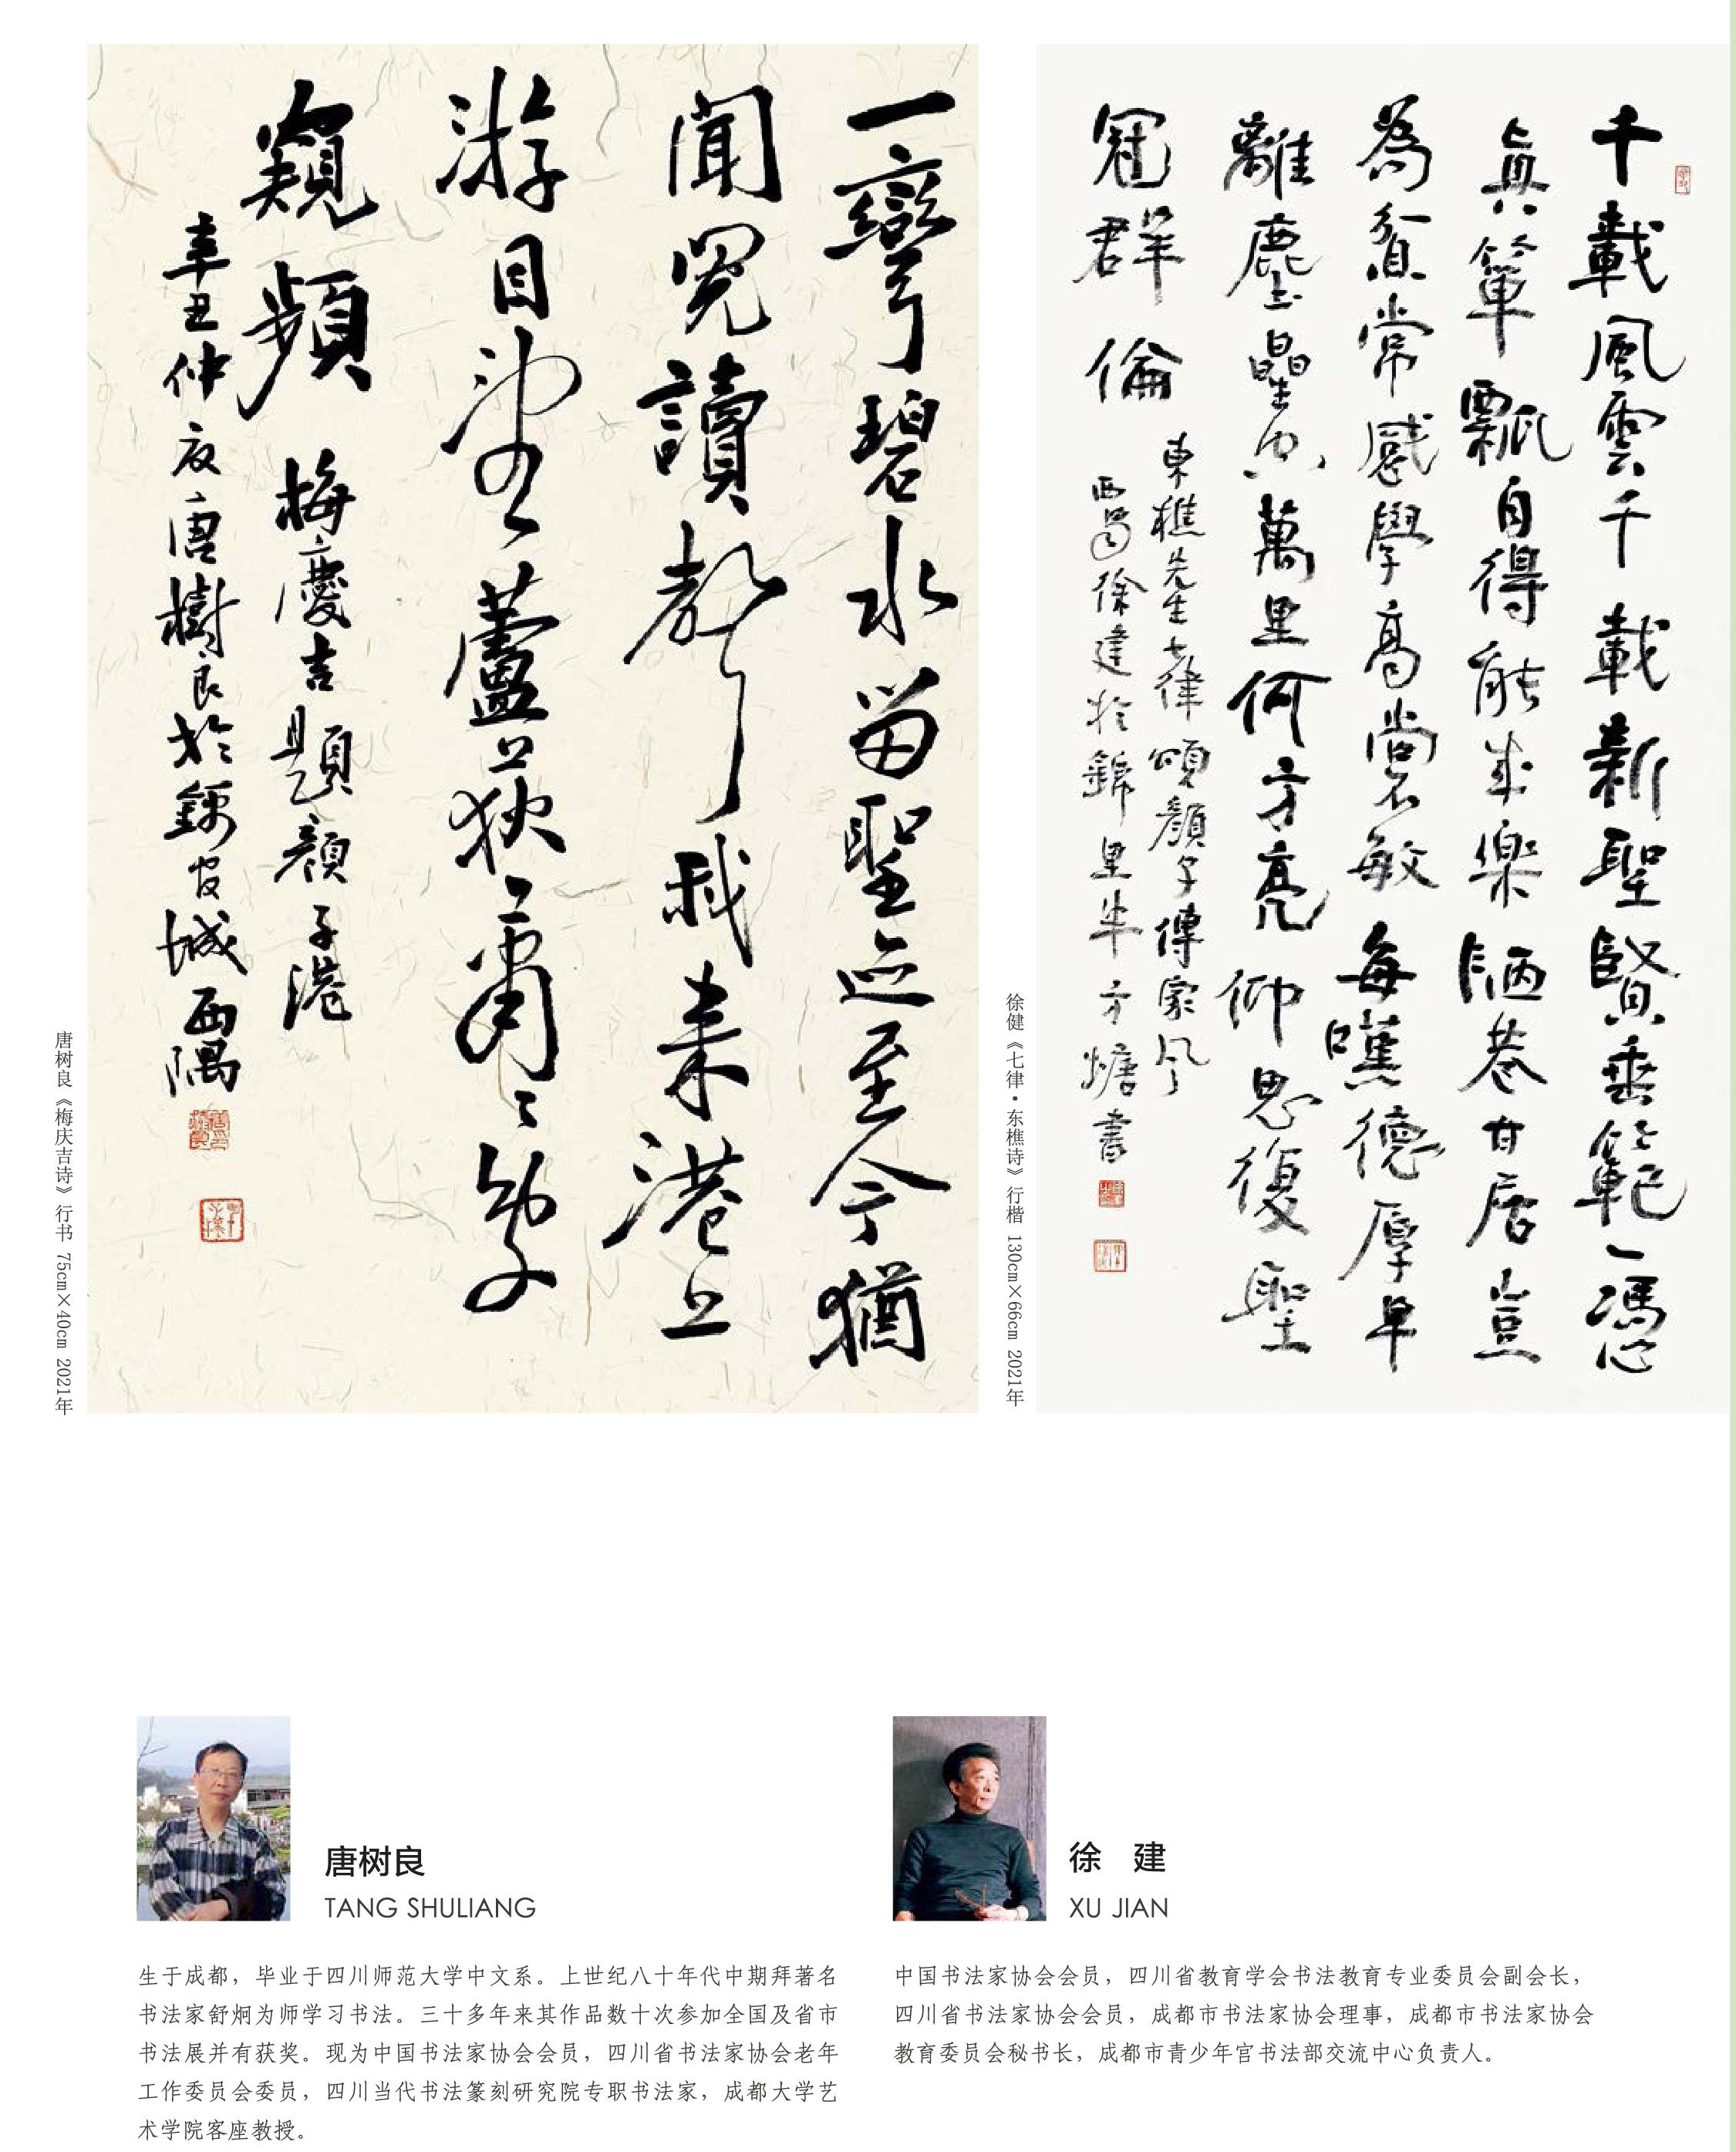 一彎碧水留聖迹至今猶
聞冕讀聲我来港上
游目望蘆荻蕭〻幼子
窺頻
梅慶吉題顔子港
辛丑仲夜唐樹良於錦官城西隅
唐树良《梅庆吉诗》行书 75cm×40cm 2021年
千載風雲千載新聖賢垂範一憑
真簞瓢自得能成樂陋巷甘居豈
為貧常感學高嘗不敏每嘆德厚早
離塵星空萬里何方亮仰思復聖
冠群倫
東樵先生七律頌顏子傳家風
西蜀徐建於錦里半方塘書
徐健《七律·东樵诗》行楷 130cm×66cm 2021年
唐树良
TANG SHULIANG
生于成都，毕业于四川师范大学中文系。上世纪八十年代中期拜著名
书法家舒炯为师学习书法。三十多年来其作品数十次参加全国及省市
书法展并有获奖。现为中国书法家协会会员，四川省书法家协会老年
工作委员会委员，四川当代书法篆刻研究院专职书法家，成都大学艺
术学院客座教授。
徐 建
XU JIAN
中国书法家协会会员，四川省教育学会书法教育专业委员会副会长，
四川省书法家协会会员，成都市书法家协会理事，成都市书法家协会
教育委员会秘书长，成都市青少年宫书法部交流中心负责人。